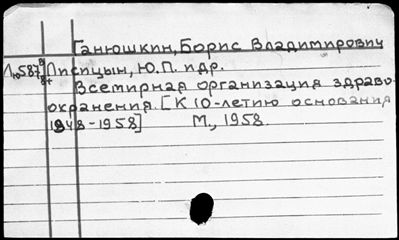 Ганюшкин, Борис Владимирович
Лисицын, Ю.П. и др.
Всемирная организация здраво-
охранения. [К 10-летию основания
1948-1958] М., 1958.